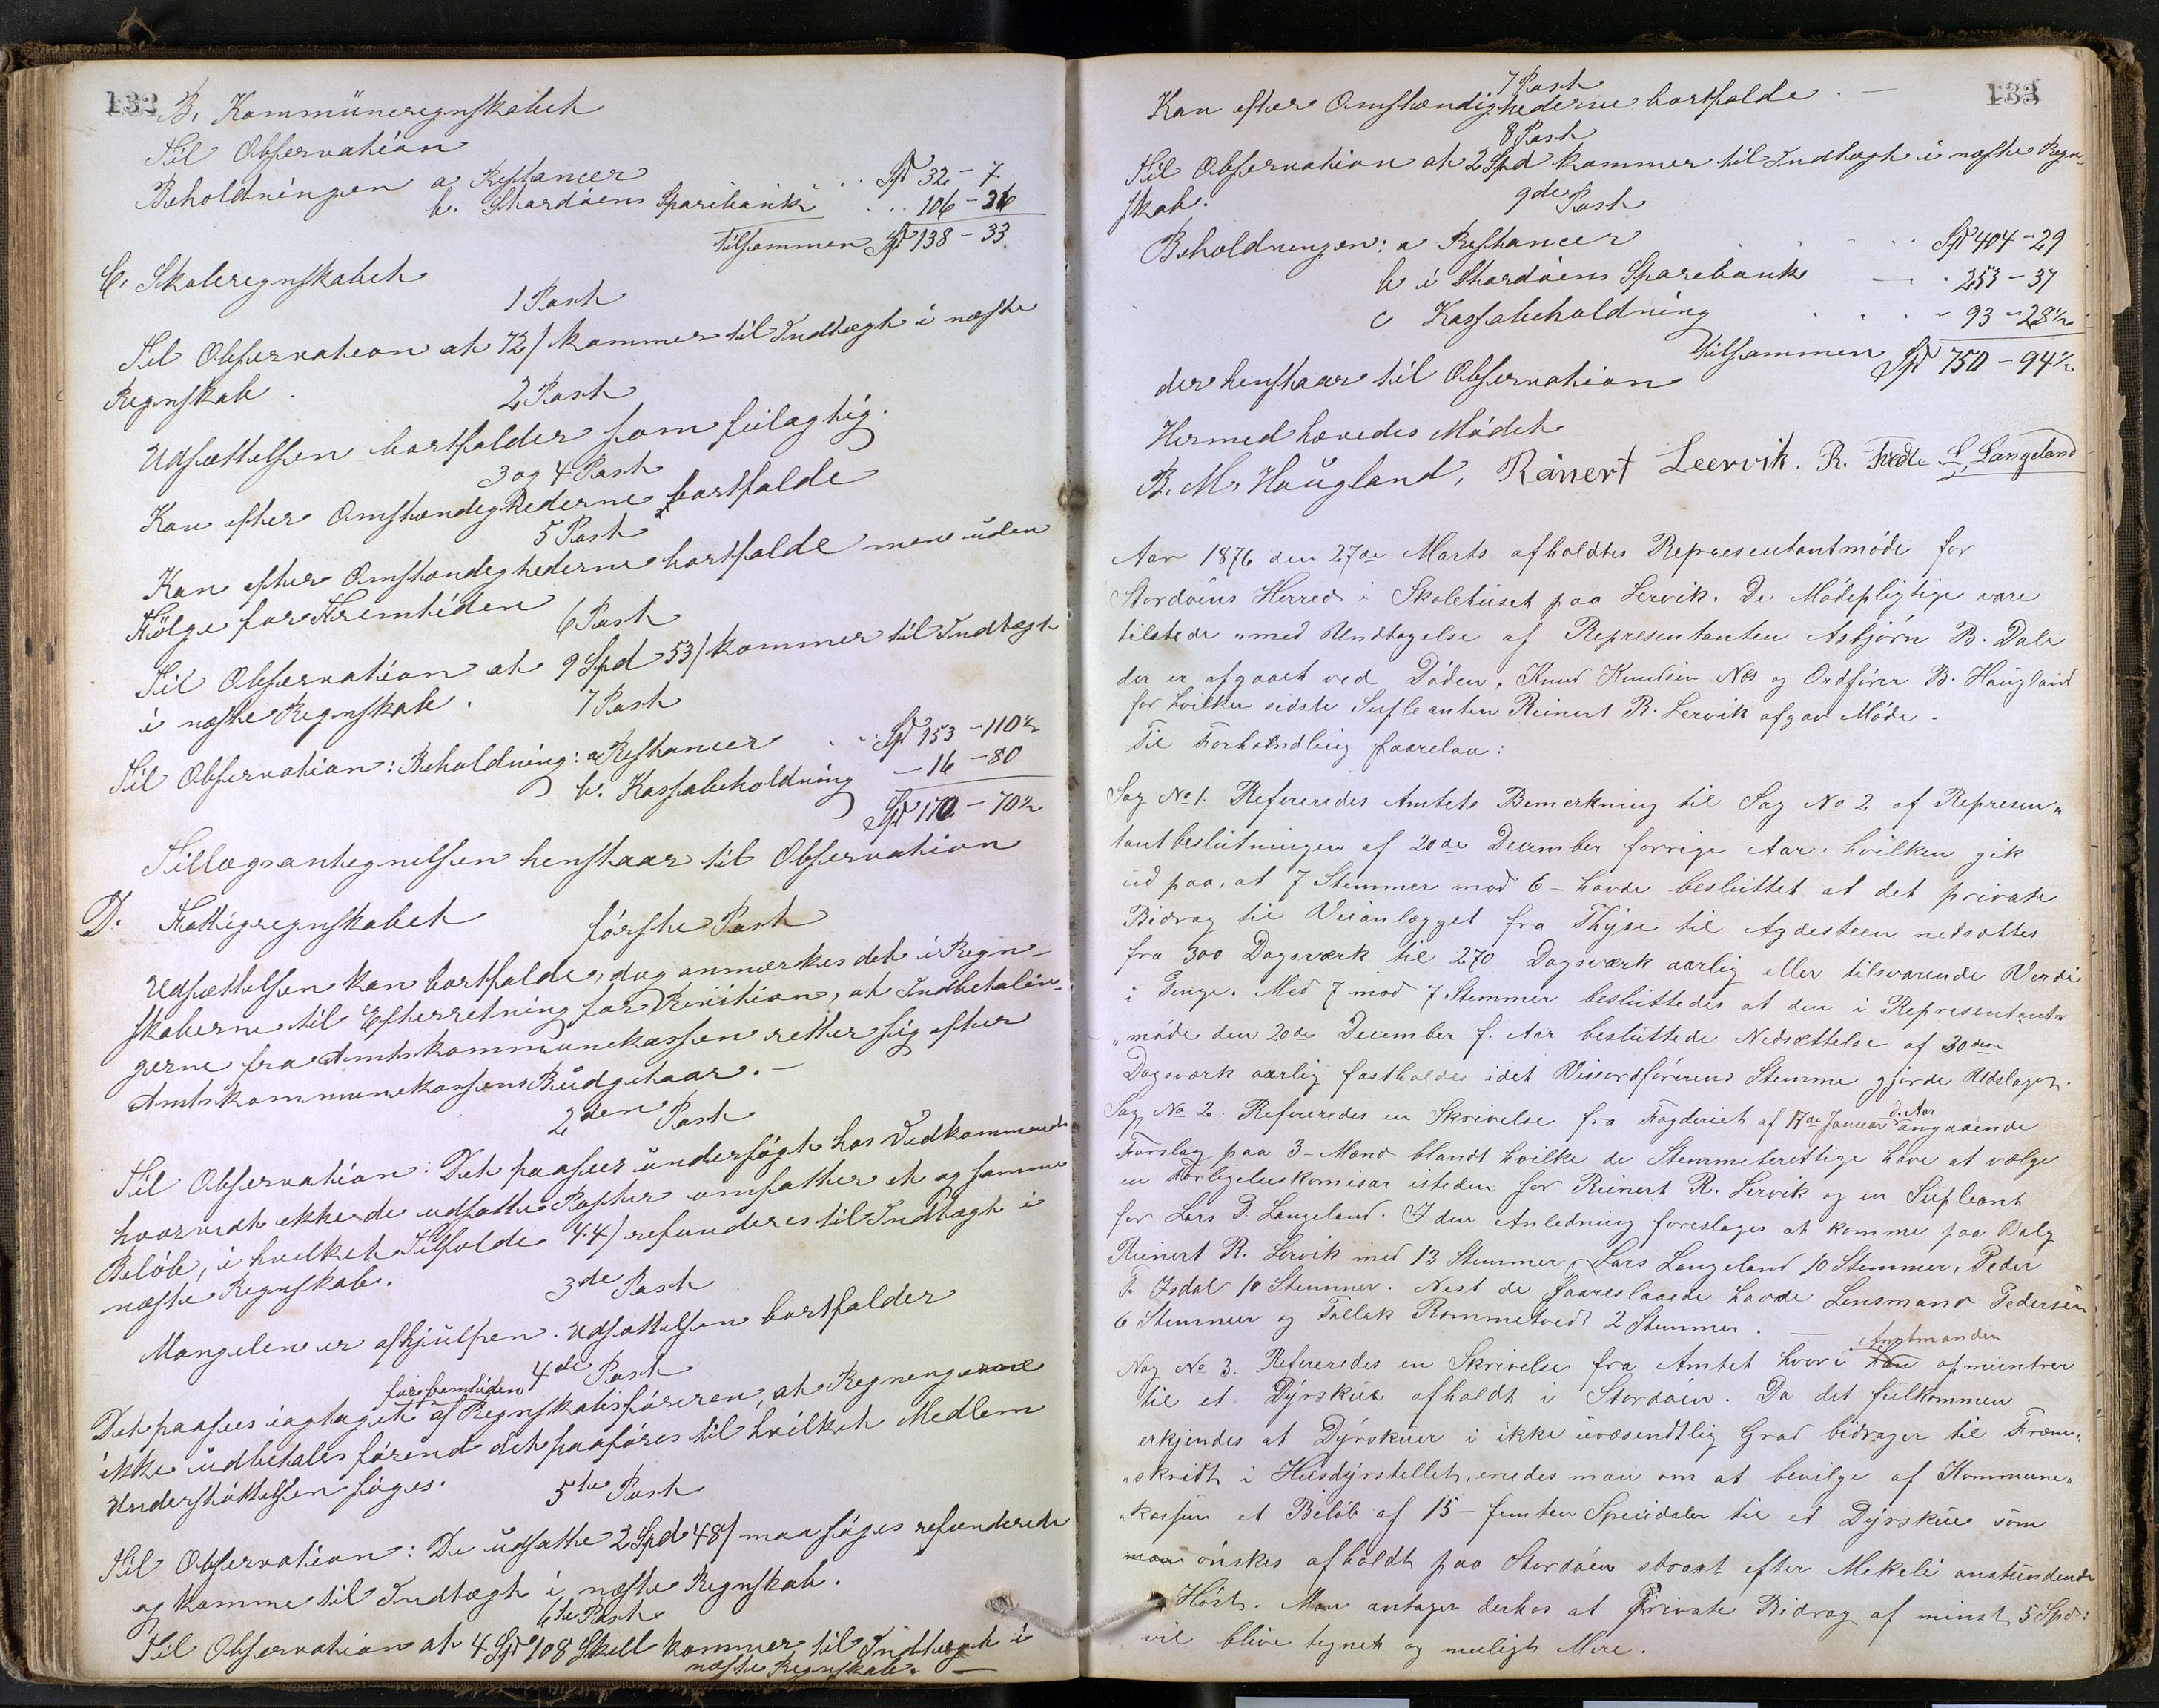 132
B. Kommuneregnskabet
Til Observation
Beholdningen a Restancer . . Spd 32 - 7
b. Stordøens Sparebank . . . 106 - 26
Tilsammen Spd 138 - 33
C. Skoleregnskabet
1 Post
Til Observation at 72/ kommer til Indtægt i næste
Regnskab.
2 Post
Udsættelsen bortfalder som feilagtig.
3 og 4 Post
Kan efter Omstændighederne bortfalde
5 Post
Kan efter Omstændighederne bortfalde men uden
Følge for Fremtiden
6 Post
Til Observation at 9 Spd 53/ kommer til Indtægt
i næste Regnskab.
7 Post
Til Observation: Beholdning: a Restancer . . Spd 153 - 110½
b. Kassabeholdning - 16 - 80
Spd 170 - 70½
Tillægsantegnelsen henstaar til Observation
D. Fattigregnskabet
første Post
Udsættelsen kan bortfalde, dog anmærkes det i Regn-
skaberne til Efterretning for Revision, at Indbetalin-
gerne fra Amtskommunekassen retter sig efter
Amtskommunekassens Budgetaar. -
2den Post
Til Observation: Det paasees undersøgt hos Vedkommende
hvorvidt ikke de udsatte Poster omfatter et og samme
Beløb, i hvilket Tilfælde 44/ refunderes til Indtægt i
næste Regnskab.
3de Post
Mangelen er afhjulpen. Udsættelsen bortfalder
4de Post
for fremtiden
Det paasees iagtaget af Regnskabsføreren, at Regningerne
ikke udbetales førend det paaføres til hvilket Medlem
Understøttelsen søges.
5te Post
Til Observation: De udsatte 2 Spd 48/ maa søges refunderede
og komme til Indtægt i næste Regnskab.
6te Post
Til Observation at 4 Spd 108 Skill kommer til Indtægt i
næste Regnskab. -
133
7 Post
Kan efter Omstændighederne bortfalde. -
8 Post
Til Observation at 2 Spd kommer til Indtægt i næste Regn-
skab.
9de Post
Beholdningen: a Restancer . . . Spd 404 - 29
b i Stordøens Sparebank - . 253 - 37
c Kassabeholdning . . . - 93 - 28½
Tilsammen Spd 750 - 94½
der henstaar til Observation
Hermed hævedes Mødet
B. M. Haugland, Rånert Leervik. R. Tvedte L. Langeland
Aar 1876 den 27de Marts afholdtes Representantmøde for
Stordøens Herred i Skolehuset paa Lervik. De Mødepligtige vare
tilstede med Undtagelse af Representanten Asbjørn B. Dale
der er afgaaet ved Døden, Knud Knudsen Næs og Ordfører B. Haugland
for hvilken sidste Supleanten Reinert R. Lervik afgav Møde.
Til Forhandling forelaa:
Sag No 1. Refereredes Amtets Bemerkning til Sag No 2 af Represen"
tantbeslutningen af 20de December forrige Aar. hvilken gik
ud paa, at 7 Stemmer mod 6 - havde besluttet at det private
Bidrag til Veianlægget fra Thyse til Agdesteen nedsættes
fra 300 Dagsværk til 270 Dagsværk aarlig eller tilsvarende Verdi
i Penge. Med 7 mod 7 Stemmer besluttedes at den i Representant"
"møde den 20de December f. Aar besluttede Nedsættelse af 30 dere
Dagsværk aarlig fastholdes idet Viseordførerens Stemme gjorde Udslaget.
d. Aar
Sag No 2. Refereredes en Skrivelse fra Fogderiet af 17de Januar angaaende
Forslag paa 3 - Mænd blandt hvilke de Stemmeberettige have at vælge
en Forligelseskomisær isteden for Reinert R. Lervik og en Supleant
for Lars P. Langeland. I den Anledning foreslages at komme paa Valg
Reinert R. Lervik med 13 Stemmer, Lars Langeland 10 Stemmer, Peder
T. Isdal 10 Stemmer. Nest de foreslaaede havde Lensmand Pedersen
6 Stemmer og Tollak Rommetvedt 2 Stemmer. -
Amtmanden
Sag No 3. Refereredes en Skrivelse fra Amtet hvori han opmuntrer
til et Dyrskue afholdt i Stordøen. Da det fulkommen
erkjendes at Dyrskuer i ikke uvæsendtlig Grad bidrager til Frem"
"skridt i Husdyrstellet, enedes man om at bevilge af Kommune"
"kassen et Beløb af 15 - femten Speciedaler til et Dyrskue som
man ønskes afholdt paa Stordøen straxt efter Mekeli anstundende
Høst. Man antager derhos at Private Bidrag af minst 5 Spd:
vil blive tegnet og muligt Mere.